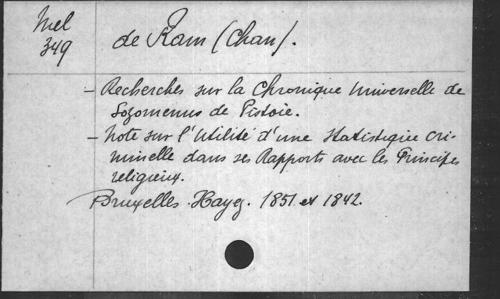 Mel
349
de Ram (Chan).
- Recherches sur la Chronique Universelle de
Sozomenus de Pistoie.
- Note sur l'Utilité d'une Statistique cri-
minelle dans ses Rapports avec les Principes
religieux.
Bruxelles. Hayez. 1851 et 1842.